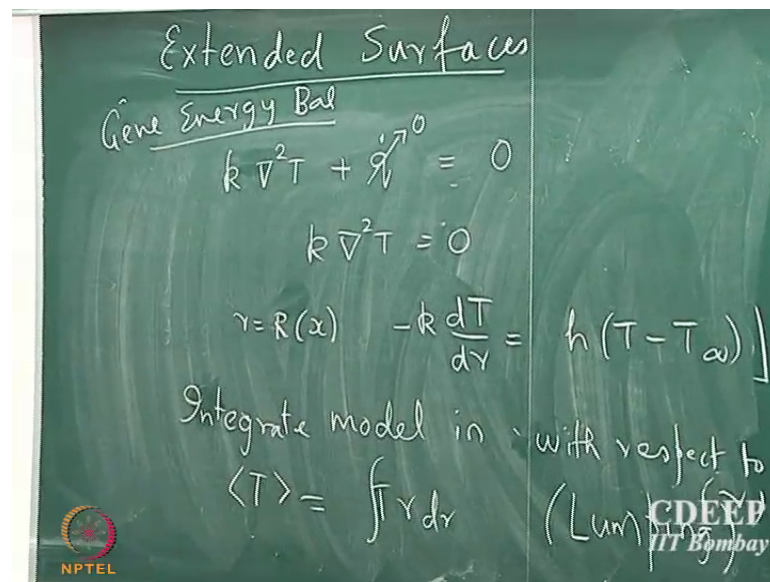 Extended Surfaces
Gene Energy Bal
k ∇²T + q̇ ↗0 = 0
k ∇²T = 0
r = R(x) -k dT/dr = h(T - T∞)]
Integrate model in with respect to
⟨T⟩ = ∫T r dr (Lumping
CDEEP
IIT Bombay
NPTEL